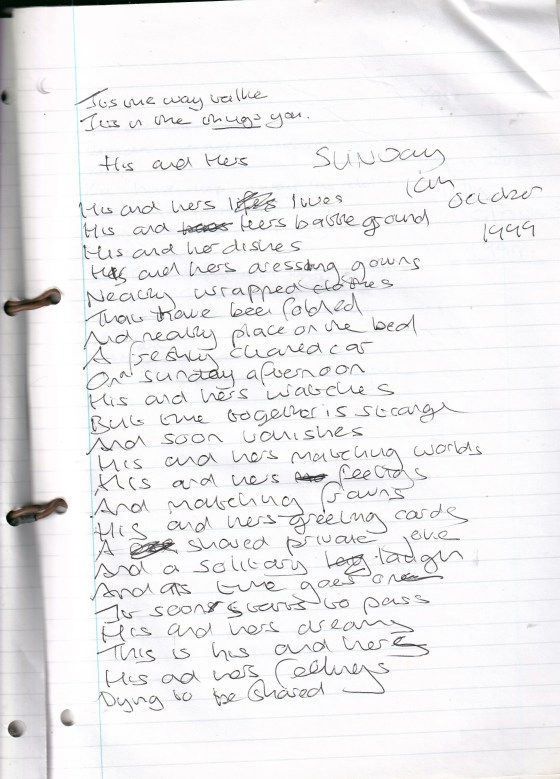 It's the way valke
It's in the things you.
His and Hers
SUNDAY
10th October 1999
His and hers lives
His and hers battle ground
His and her dishes
His and hers dressing gowns
Neatly wrapped clothes
That have been folded
And neatly place on the bed
A freshly cleaned car
On a sunday afternoon
His and hers watches
But time together is strange
And soon vanishes
His and hers matching worlds
His and hers feelings
And matching frowns
His and hers greeting cards
A shared private joke
And a solitary laugh
And as time goes on
It soon starts to pass
His and hers dreams
This is his and hers
His ad hers feelings
Dying to be shared